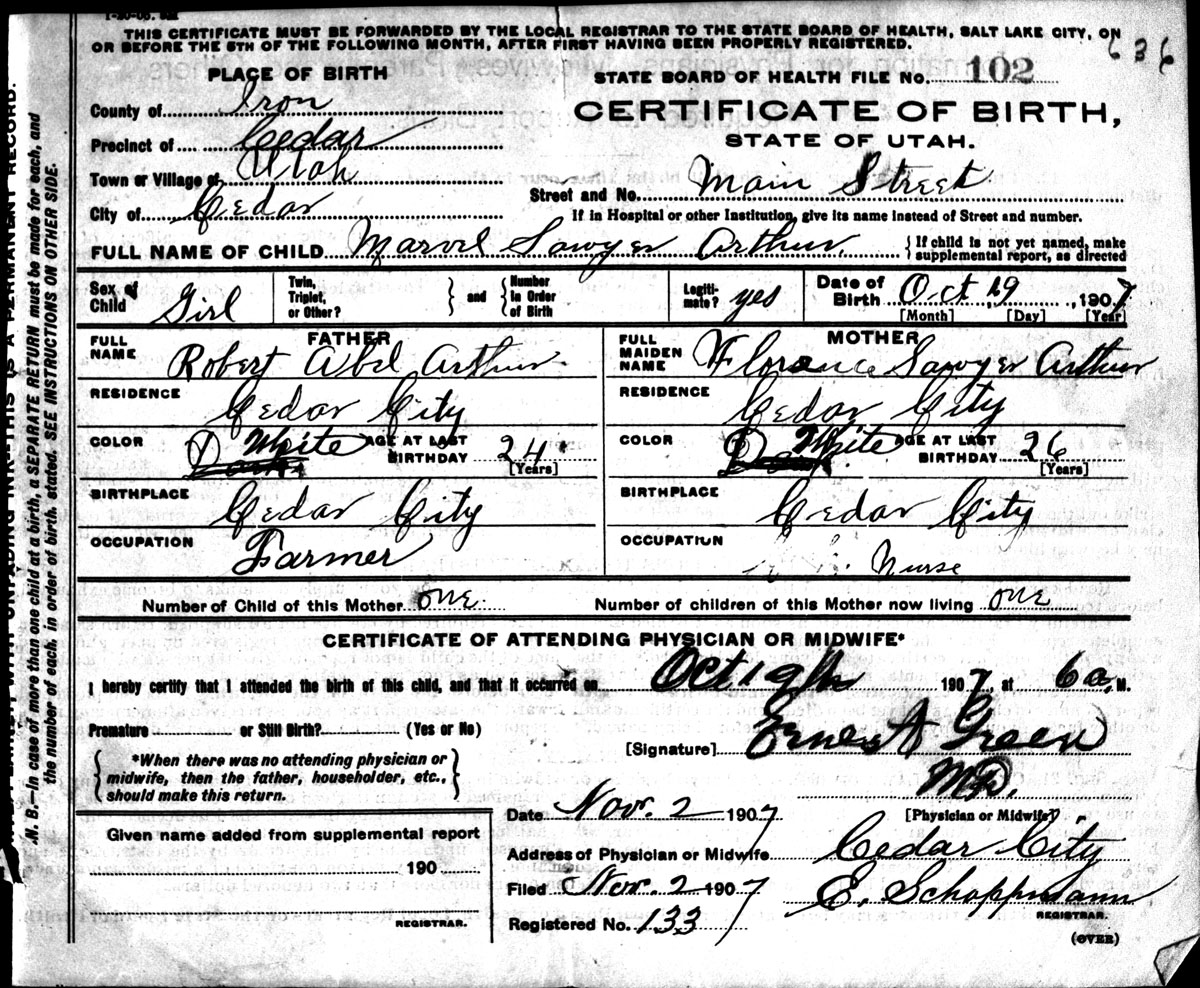 1-20-06. 5M
THIS CERTIFICATE MUST BE FORWARDED BY THE LOCAL REGISTRAR TO THE STATE BOARD OF HEALTH, SALT LAKE CITY, ON
OR BEFORE THE 5TH OF THE FOLLOWING MONTH, AFTER FIRST HAVING BEEN PROPERLY REGISTERED.
636
PLACE OF BIRTH
STATE BOARD OF HEALTH FILE NO. 102
County of Iron
CERTIFICATE OF BIRTH,
Precinct of Cedar
STATE OF UTAH.
Town or Village of Utah
Street and No. Main Street
City of Cedar
If in Hospital or other Institution, give its name instead of Street and number.
FULL NAME OF CHILD Marvel Sawyer Arthur.
{If child is not yet named, make
supplemental report, as directed
Sex of Child Girl
Twin, Triplet, or Other? } and { Number in Order of Birth
Legitimate? yes
Date of Birth Oct 19, 1907
[Month] [Day] [Year]
FATHER
FULL NAME Robert Abel Arthur
RESIDENCE Cedar City
COLOR White AGE AT LAST BIRTHDAY 24
[Years]
BIRTHPLACE Cedar City
OCCUPATION Farmer
MOTHER
FULL MAIDEN NAME Florence Sawyer Arthur
RESIDENCE Cedar City
COLOR White AGE AT LAST BIRTHDAY 26
[Years]
BIRTHPLACE Cedar City
OCCUPATION Nurse
Number of Child of this Mother one
Number of children of this Mother now living one
CERTIFICATE OF ATTENDING PHYSICIAN OR MIDWIFE*
I hereby certify that I attended the birth of this child, and that it occurred on Oct 19th 1907, at 6 a. M.
Premature or Still Birth? (Yes or No)
[Signature] Ernest Green
M.D.
[Physician or Midwife]
{ *When there was no attending physician or
midwife, then the father, householder, etc.,
should make this return. }
Date Nov. 2 1907
Given name added from supplemental report
190
REGISTRAR.
Address of Physician or Midwife Cedar City
Filed Nov. 2 1907 E. Schoppmann
REGISTRAR.
Registered No. 133
(OVER)
N. B.—In case of more than one child at a birth, a SEPARATE RETURN must be made for each, and
the number of each, in order of birth, stated. SEE INSTRUCTIONS ON OTHER SIDE.
WITH UNFADING INK—THIS IS A PERMANENT RECORD.